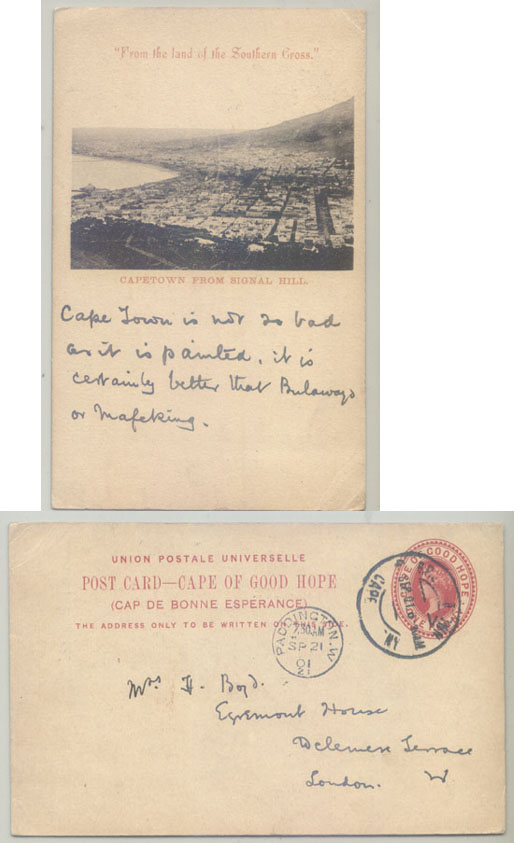 "From the land of the Southern Cross."
CAPETOWN FROM SIGNAL HILL.
Cape Town is not so bad
as it is painted, it is
certainly better that Bulawayo
or Mafeking.
UNION POSTALE UNIVERSELLE
POST CARD—CAPE OF GOOD HOPE
(CAP DE BONNE ESPÉRANCE)
THE ADDRESS ONLY TO BE WRITTEN ON THIS SIDE.
CAPE OF GOOD HOPE
PADDINGTON.W
7.30AM
SP 21
01
21
Mrs H. Boyd.
Egremont House
Delemere Terrace
London. W